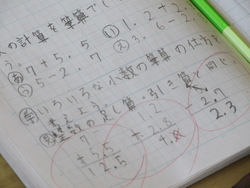 の計算を筆算でし
あ 7+5.5 い 1.2+2.
5-2.7 3.6-2.
いろいろな小数の筆算の仕方
整数のたし算・引き算と同じ
7 1.2 2.7
+5.5 +2.8 2.3
12.5